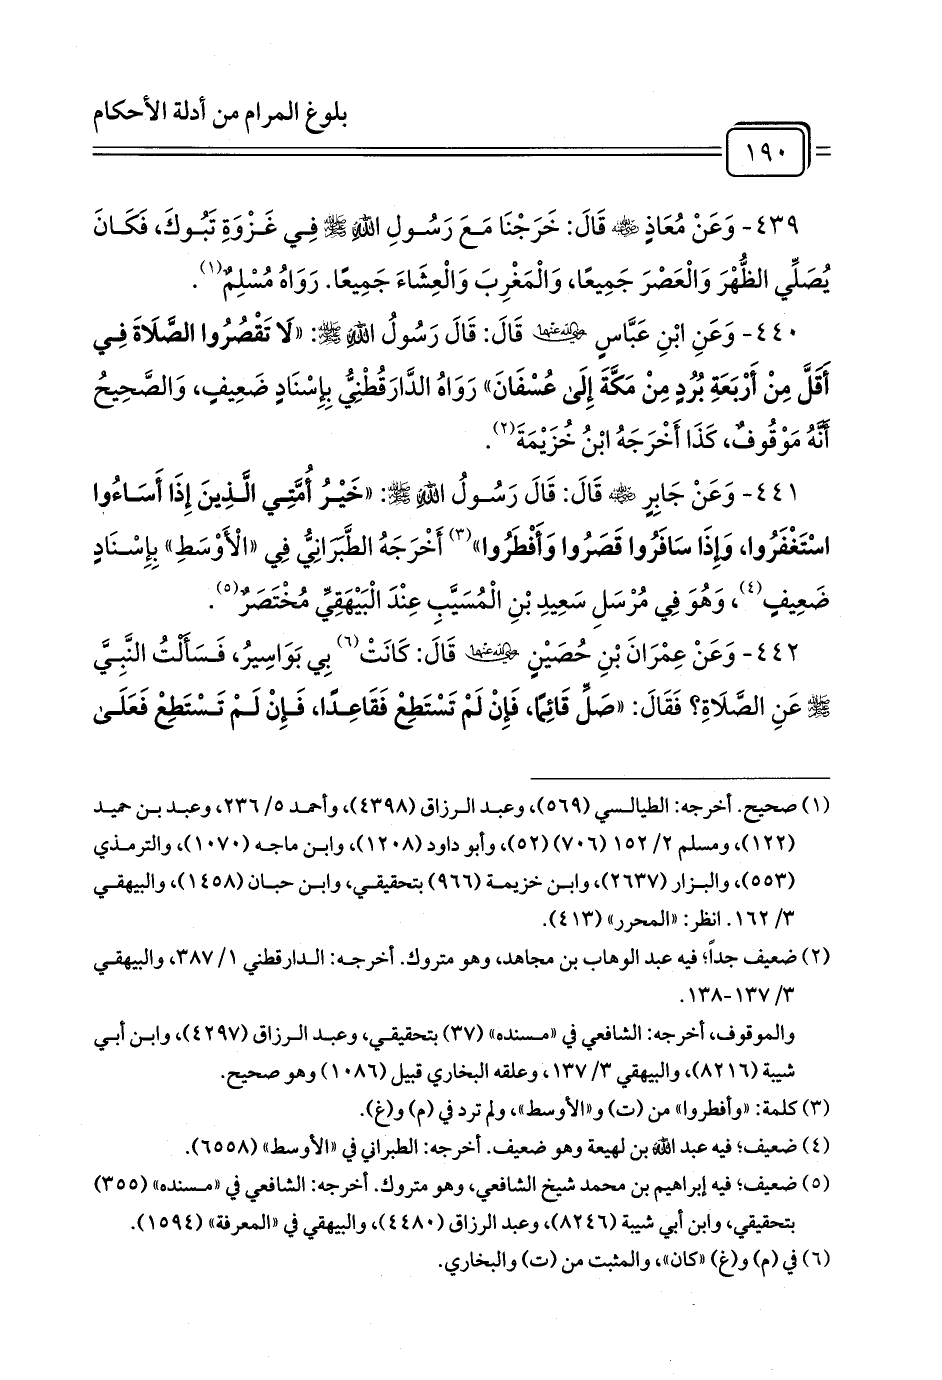 بلوغ المرام من أدلة الأحكام
١٩٠
٤٣٩- وَعَنْ مُعَاذٍ ﵁ قَالَ: خَرَجْنَا مَعَ رَسُولِ اللهِ ﷺ فِي غَزْوَةِ تَبُوكَ، فَكَانَ
يُصَلِّي الظُّهْرَ وَالْعَصْرَ جَمِيعًا، وَالْمَغْرِبَ وَالْعِشَاءَ جَمِيعًا. رَوَاهُ مُسْلِمٌ(١).
٤٤٠- وَعَنِ ابْنِ عَبَّاسٍ ﵄ قَالَ: قَالَ رَسُولُ اللهِ ﷺ: «لَا تَقْصُرُوا الصَّلَاةَ فِي
أَقَلَّ مِنْ أَرْبَعَةِ بُرُدٍ مِنْ مَكَّةَ إِلَى عُسْفَانَ» رَوَاهُ الدَّارَقُطْنِيُّ بِإِسْنَادٍ ضَعِيفٍ، وَالصَّحِيحُ
أَنَّهُ مَوْقُوفٌ، كَذَا أَخْرَجَهُ ابْنُ خُزَيْمَةَ(٢).
٤٤١- وَعَنْ جَابِرٍ ﵁ قَالَ: قَالَ رَسُولُ اللهِ ﷺ: «خَيْرُ أُمَّتِي الَّذِينَ إِذَا أَسَاءُوا
اسْتَغْفَرُوا، وَإِذَا سَافَرُوا قَصَرُوا وَأَفْطَرُوا»(٣) أَخْرَجَهُ الطَّبَرَانِيُّ فِي «الْأَوْسَطِ» بِإِسْنَادٍ
ضَعِيفٍ(٤)، وَهُوَ فِي مُرْسَلِ سَعِيدِ بْنِ الْمُسَيَّبِ عِنْدَ الْبَيْهَقِيِّ مُخْتَصَرٌ(٥).
٤٤٢- وَعَنْ عِمْرَانَ بْنِ حُصَيْنٍ ﵄ قَالَ: كَانَتْ(٦) بِي بَوَاسِيرُ، فَسَأَلْتُ النَّبِيَّ
ﷺ عَنِ الصَّلَاةِ؟ فَقَالَ: «صَلِّ قَائِمًا، فَإِنْ لَمْ تَسْتَطِعْ فَقَاعِدًا، فَإِنْ لَمْ تَسْتَطِعْ فَعَلَى
(١) صحيح. أخرجه: الطيالسي (٥٦٩)، وعبد الرزاق (٤٣٩٨)، وأحمد ٥/ ٢٣٦، وعبد بن حميد
(١٢٢)، ومسلم ٢/ ١٥٢ (٧٠٦) (٥٢)، وأبو داود (١٢٠٨)، وابن ماجه (١٠٧٠)، والترمذي
(٥٥٣)، والبزار (٢٦٣٧)، وابن خزيمة (٩٦٦) بتحقيقي، وابن حبان (١٤٥٨)، والبيهقي
٣/ ١٦٢. انظر: «المحرر» (٤١٣).
(٢) ضعيف جداً؛ فيه عبد الوهاب بن مجاهد، وهو متروك. أخرجه: الدارقطني ١/ ٣٨٧، والبيهقي
٣/ ١٣٧-١٣٨.
والموقوف، أخرجه: الشافعي في «مسنده» (٣٧) بتحقيقي، وعبد الرزاق (٤٢٩٧)، وابن أبي
شيبة (٨٢١٦)، والبيهقي ٣/ ١٣٧، وعلقه البخاري قبيل (١٠٨٦) وهو صحيح.
(٣) كلمة: «وأفطروا» من (ت) و«الأوسط»، ولم ترد في (م) و(غ).
(٤) ضعيف؛ فيه عبد الله بن لهيعة وهو ضعيف. أخرجه: الطبراني في «الأوسط» (٦٥٥٨).
(٥) ضعيف؛ فيه إبراهيم بن محمد شيخ الشافعي، وهو متروك. أخرجه: الشافعي في «مسنده» (٣٥٥)
بتحقيقي، وابن أبي شيبة (٨٢٤٦)، وعبد الرزاق (٤٤٨٠)، والبيهقي في «المعرفة» (١٥٩٤).
(٦) في (م) و(غ) «كان»، والمثبت من (ت) والبخاري.